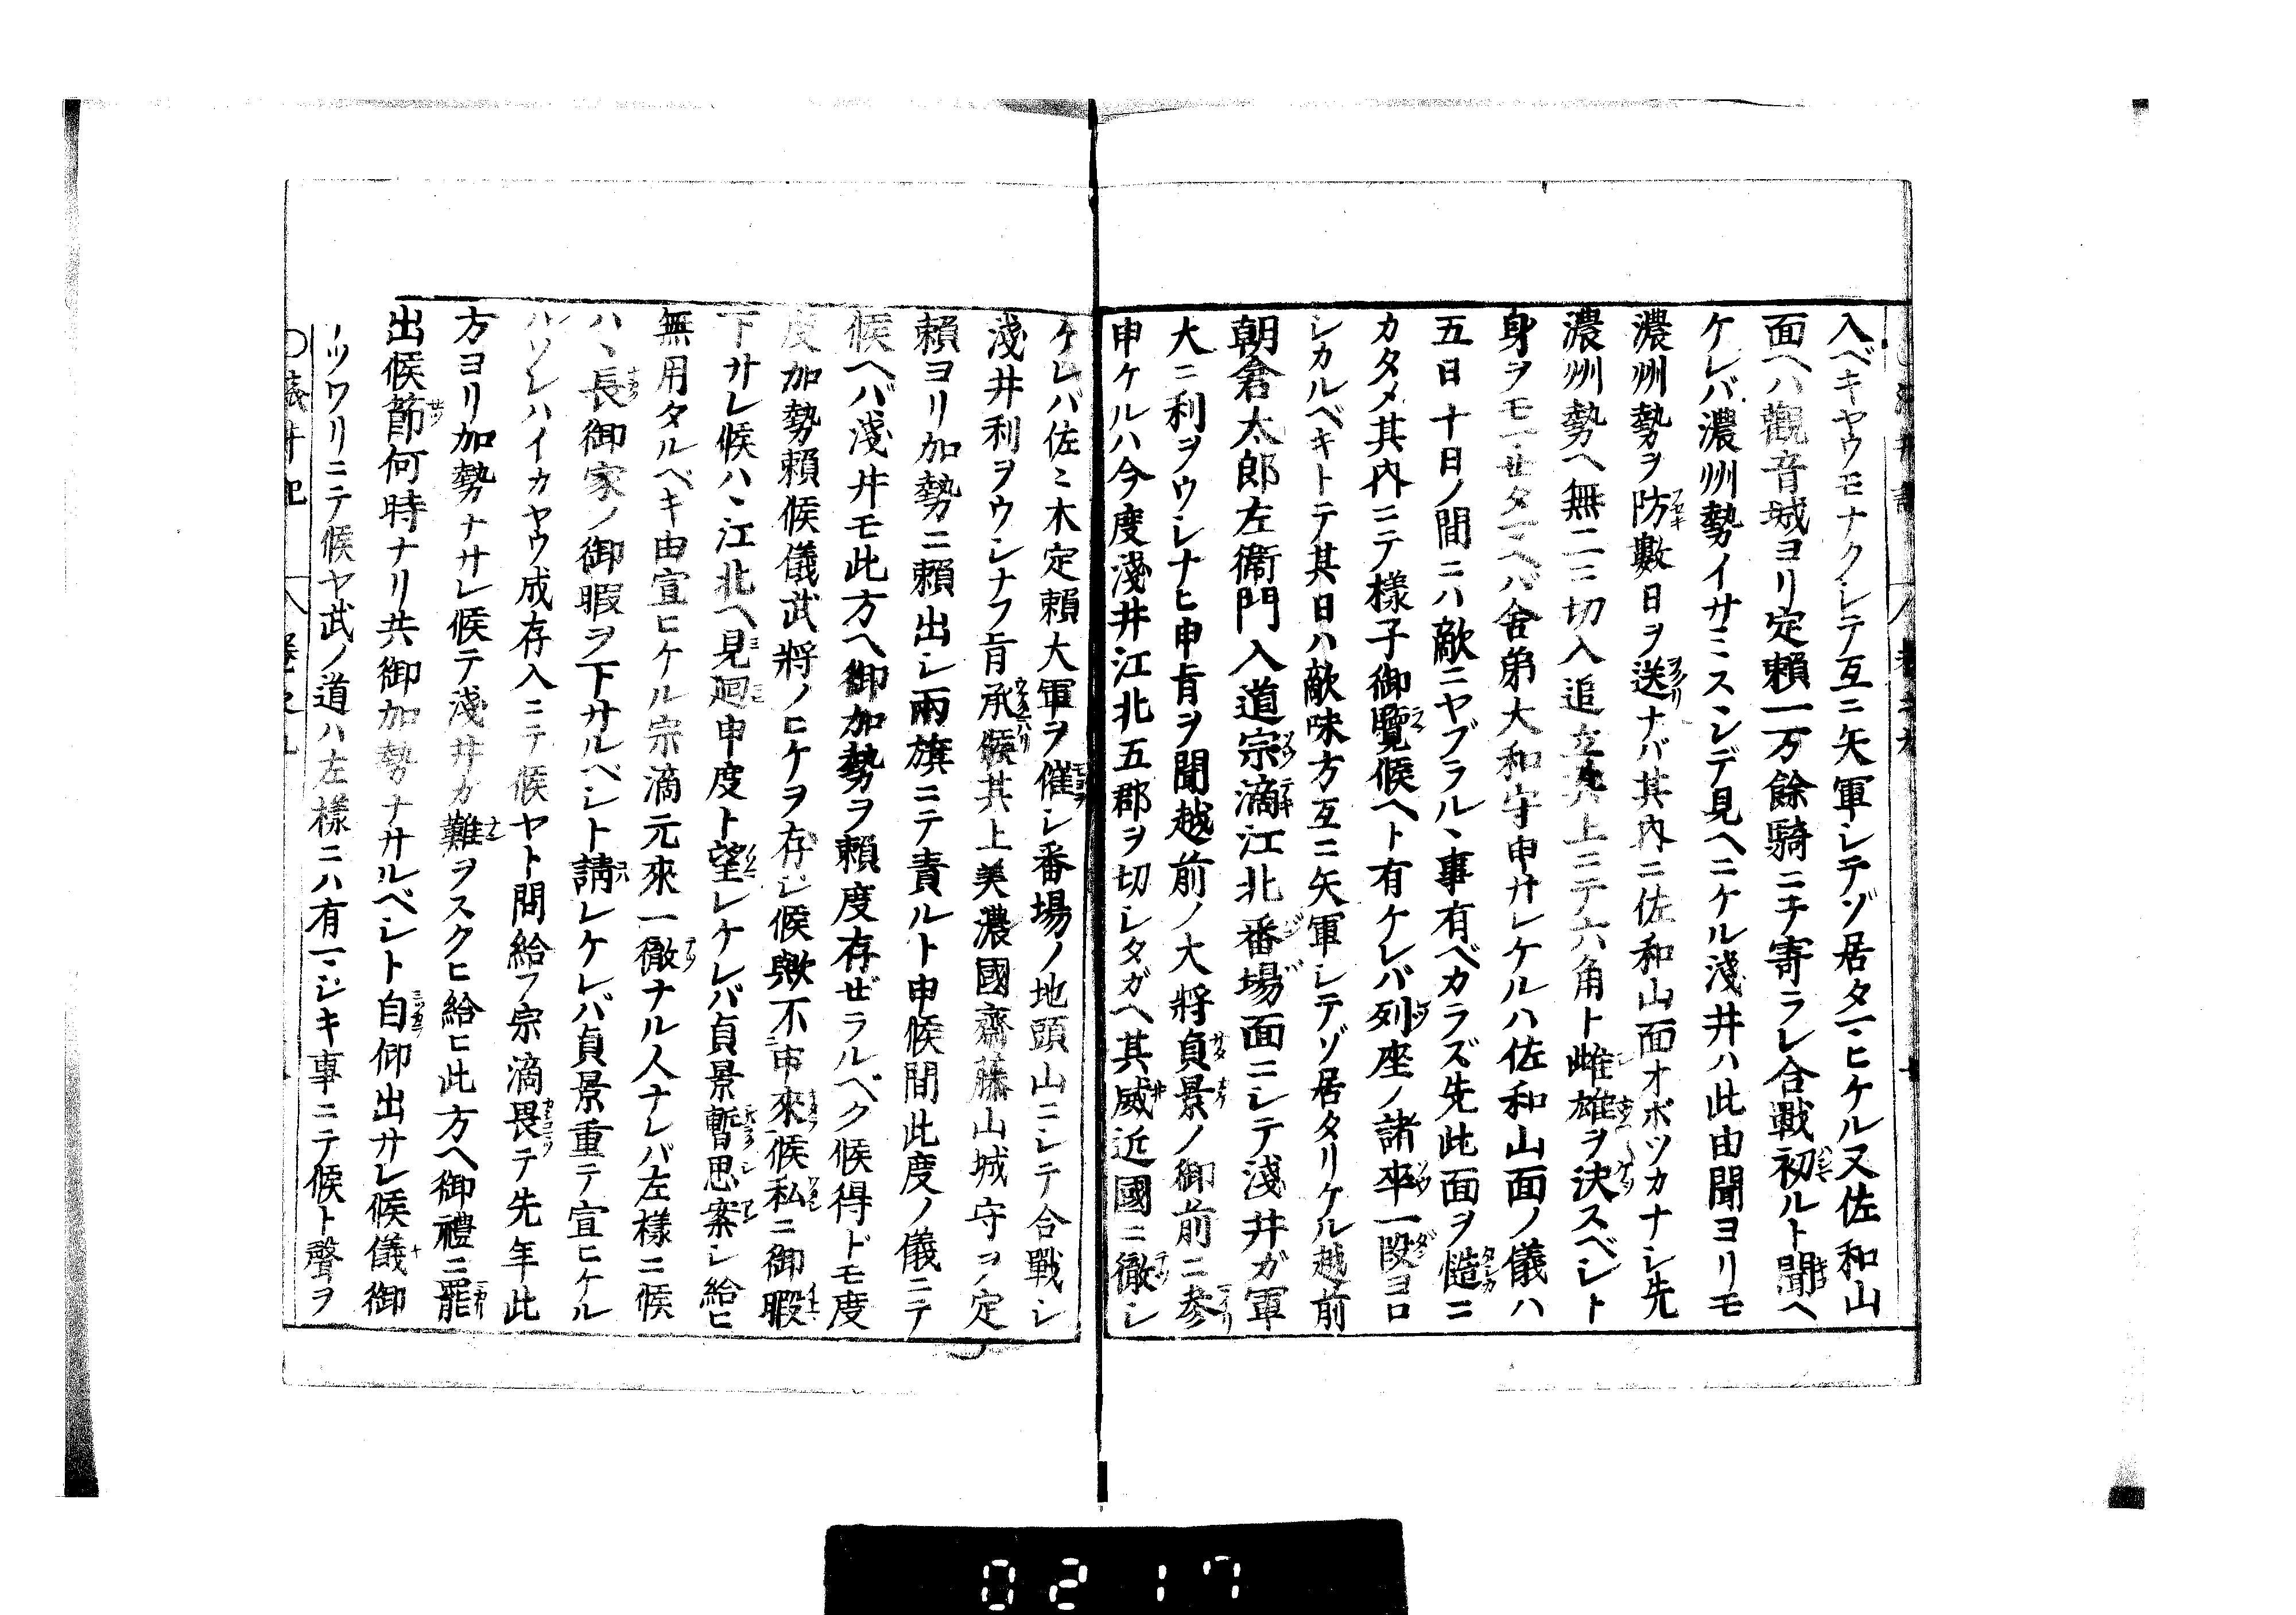 入ベキヤウモナクシテ互ニ矢軍シテゾ居タマヒケル又佐和山
面ヘハ觀音城ヨリ定賴一万餘騎ニテ寄ラレ合戰初ルト聞ヘ
ケレバ濃州勢イサミスヽンデ見ヘニケル淺井ハ此由聞ヨリモ
濃州勢ヲ防數日ヲ送ナバ其内ニ佐和山面オボツカナシ先
濃州勢ヘ無二ニ切入追立其上ニテ六角ト雌雄ヲ決スベシト
身ヲモマセタマヘバ舍弟大和守申サレケルハ佐和山面ノ儀ハ
五日十日ノ間ニハ敵ニヤブラルヽ事有ベカラズ先此面ヲ慥ニ
カタメ其内ニテ樣子御覽候ヘト有ケレバ列座ノ諸卒一段ヨロ
シカルベキトテ其日ハ敵味方互ニ矢軍シテゾ居タリケル越前
朝倉太郎左衞門入道宗滴江北番場面ニシテ淺井ガ軍
大ニ利ヲウシナヒ申旨ヲ聞越前ノ大將貞景ノ御前ニ參
申ケルハ今度淺井江北五郡ヲ切シタガヘ其威近國ニ徹シ
ケレバ佐ミ木定賴大軍ヲ催シ番場ノ地頭山ニシテ合戰シ
淺井利ヲウシナフ旨承候其上美濃國齋藤山城守ヲノ定
賴ヨリ加勢ニ賴出シ兩旗ニテ責ルト申候間此度ノ儀ニテ
候ヘバ淺井モ此方ヘ御加勢ヲ賴度存ゼラルベク候得ドモ度
度加勢賴候儀武將ノヒケヲ存ジ候歟不申來候私ニ御暇
下サレ候ハヽ江北ヘ見廻申度ト望レケレバ貞景暫思案シ給ヒ
無用タルベキ由宣ヒケル宗滴元來一徹ナル人ナレバ左樣ニ候
ハヽ長御家ノ御暇ヲ下サルベシト請レケレバ貞景重テ宣ヒケル
ハソレハイカヤウ成存入ニテ候ヤト問給フ宗滴畏テ先年此
方ヨリ加勢ナサレ候テ淺井カ難ヲスクヒ給ヒ此方ヘ御禮ニ罷
出候節何時ナリ共御加勢ナサルベシト自仰出サレ候儀御
イツワリニテ候ヤ武ノ道ハ左樣ニハ有マジキ事ニテ候ト聲ヲ
0217